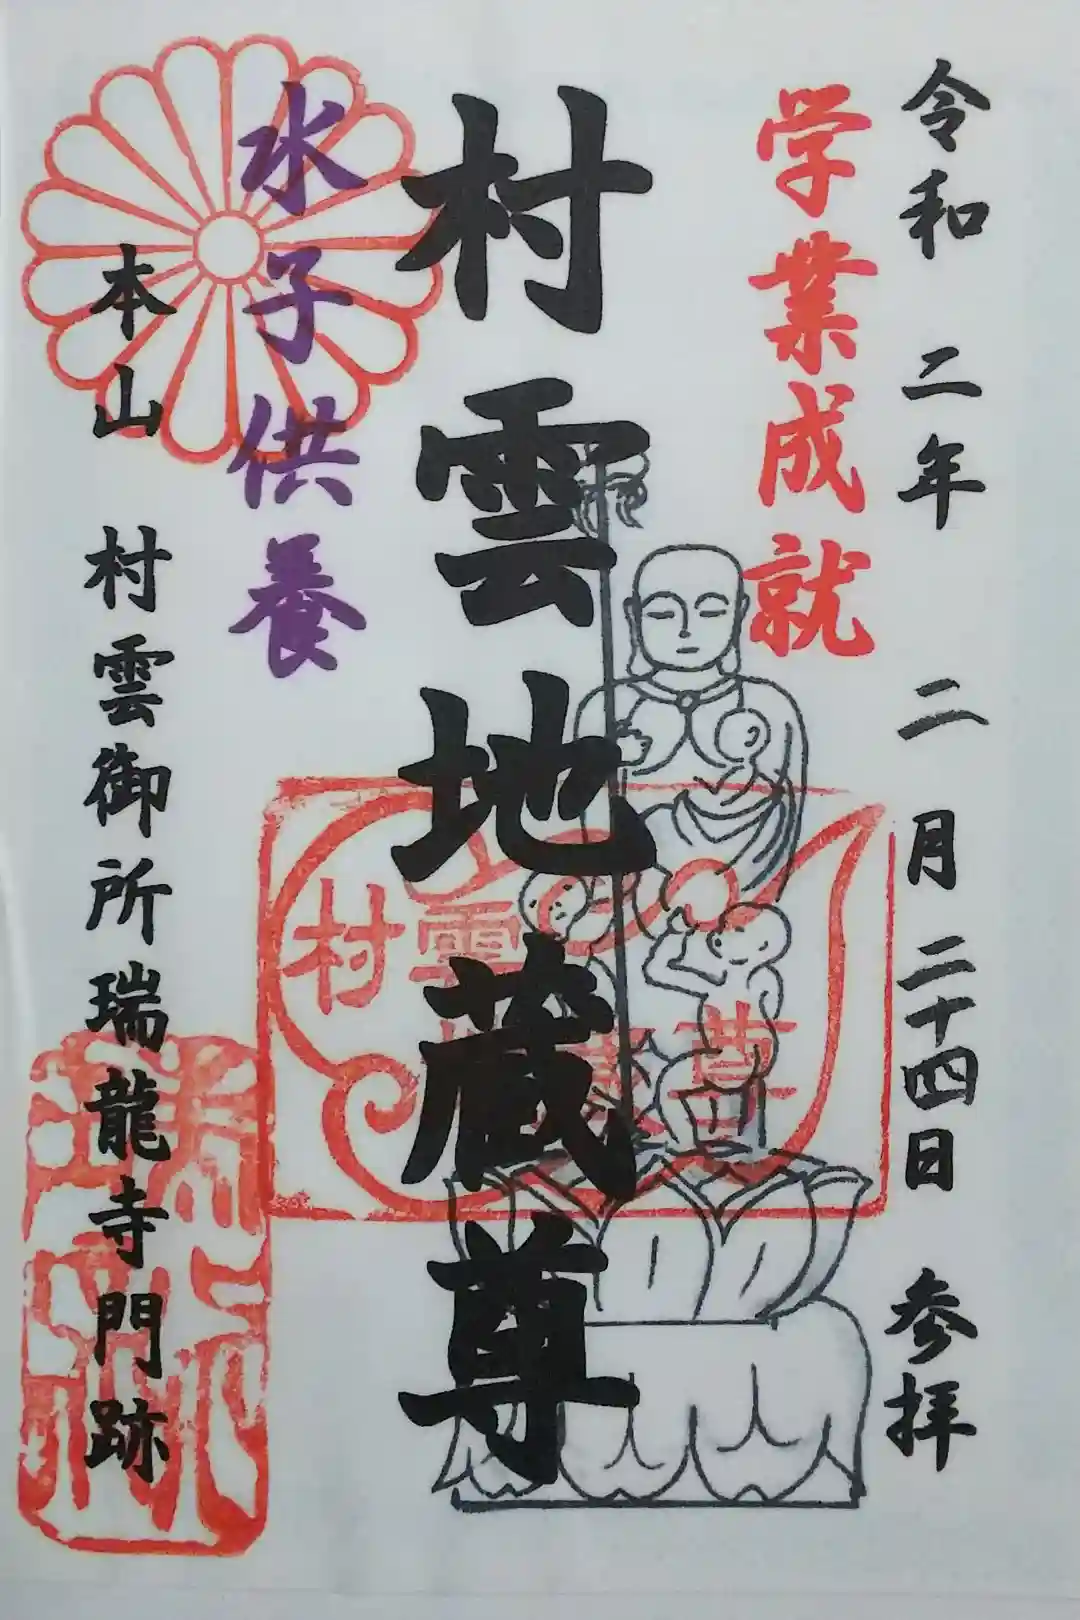 令和 二年 二月 二十四日 参拝
学業成就
村雲地蔵尊
水子供養
本山 村雲御所瑞龍寺門跡
村雲
尊